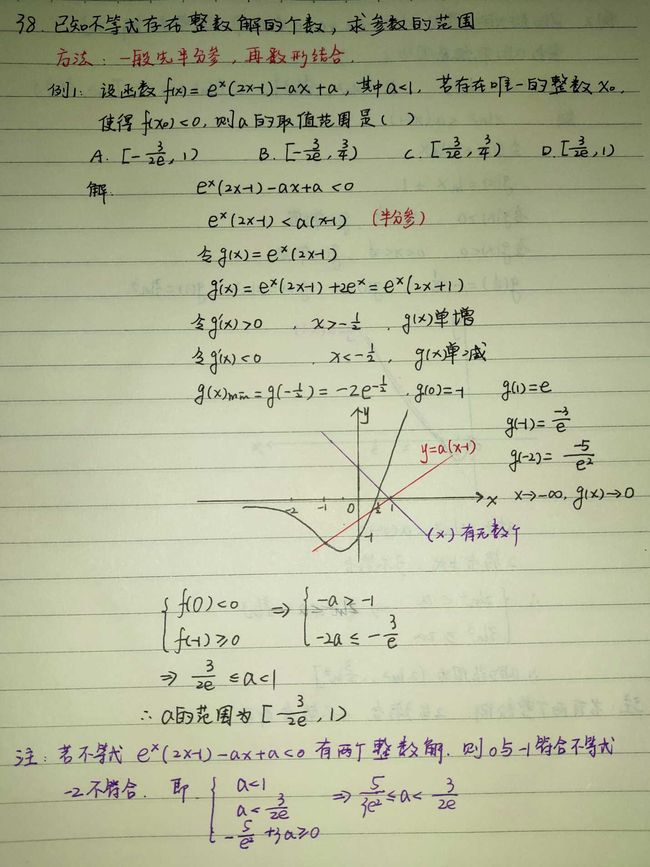 38. 已知不等式存在整数解的个数，求参数的范围
方法：一般先半分参，再数形结合.
例1: 设函数 f(x) = eˣ(2x-1) - ax + a, 其中 a<1, 若存在唯一的整数 x₀,
使得 f(x₀) < 0, 则 a 的取值范围是( )
A. [-3/2e, 1) B. [-3/2e, 3/4) C. [3/2e, 3/4) D. [3/2e, 1)
解. eˣ(2x-1) - ax + a < 0
eˣ(2x-1) < a(x-1) (半分参)
令 g(x) = eˣ(2x-1)
g'(x) = eˣ(2x-1) + 2eˣ = eˣ(2x+1)
令 g'(x) > 0 , x > -1/2 , g(x)单增
令 g'(x) < 0 , x < -1/2 , g(x)单减
g(x)min = g(-1/2) = -2e^(-1/2) , g(0) = -1 g(1) = e
g(-1) = -3/e
g(-2) = -5/e²
x→-∞, g(x)→0
y
y=a(x-1)
-2 -1 0 1/2 1 x
-1
(×) 有无数个
{ f(0) < 0 ⇒ { -a ≥ -1
f(-1) ≥ 0 -2a ≤ -3/e
⇒ 3/2e ≤ a < 1
∴ a的范围为 [3/2e, 1)
注: 若不等式 eˣ(2x-1) - ax + a < 0 有两个整数解. 则 0 与 -1 符合不等式
-2 不符合. 即 { a < 1
a < 3/2e ⇒ 5/3e² ≤ a < 3/2e
-5/e² + 3a ≥ 0